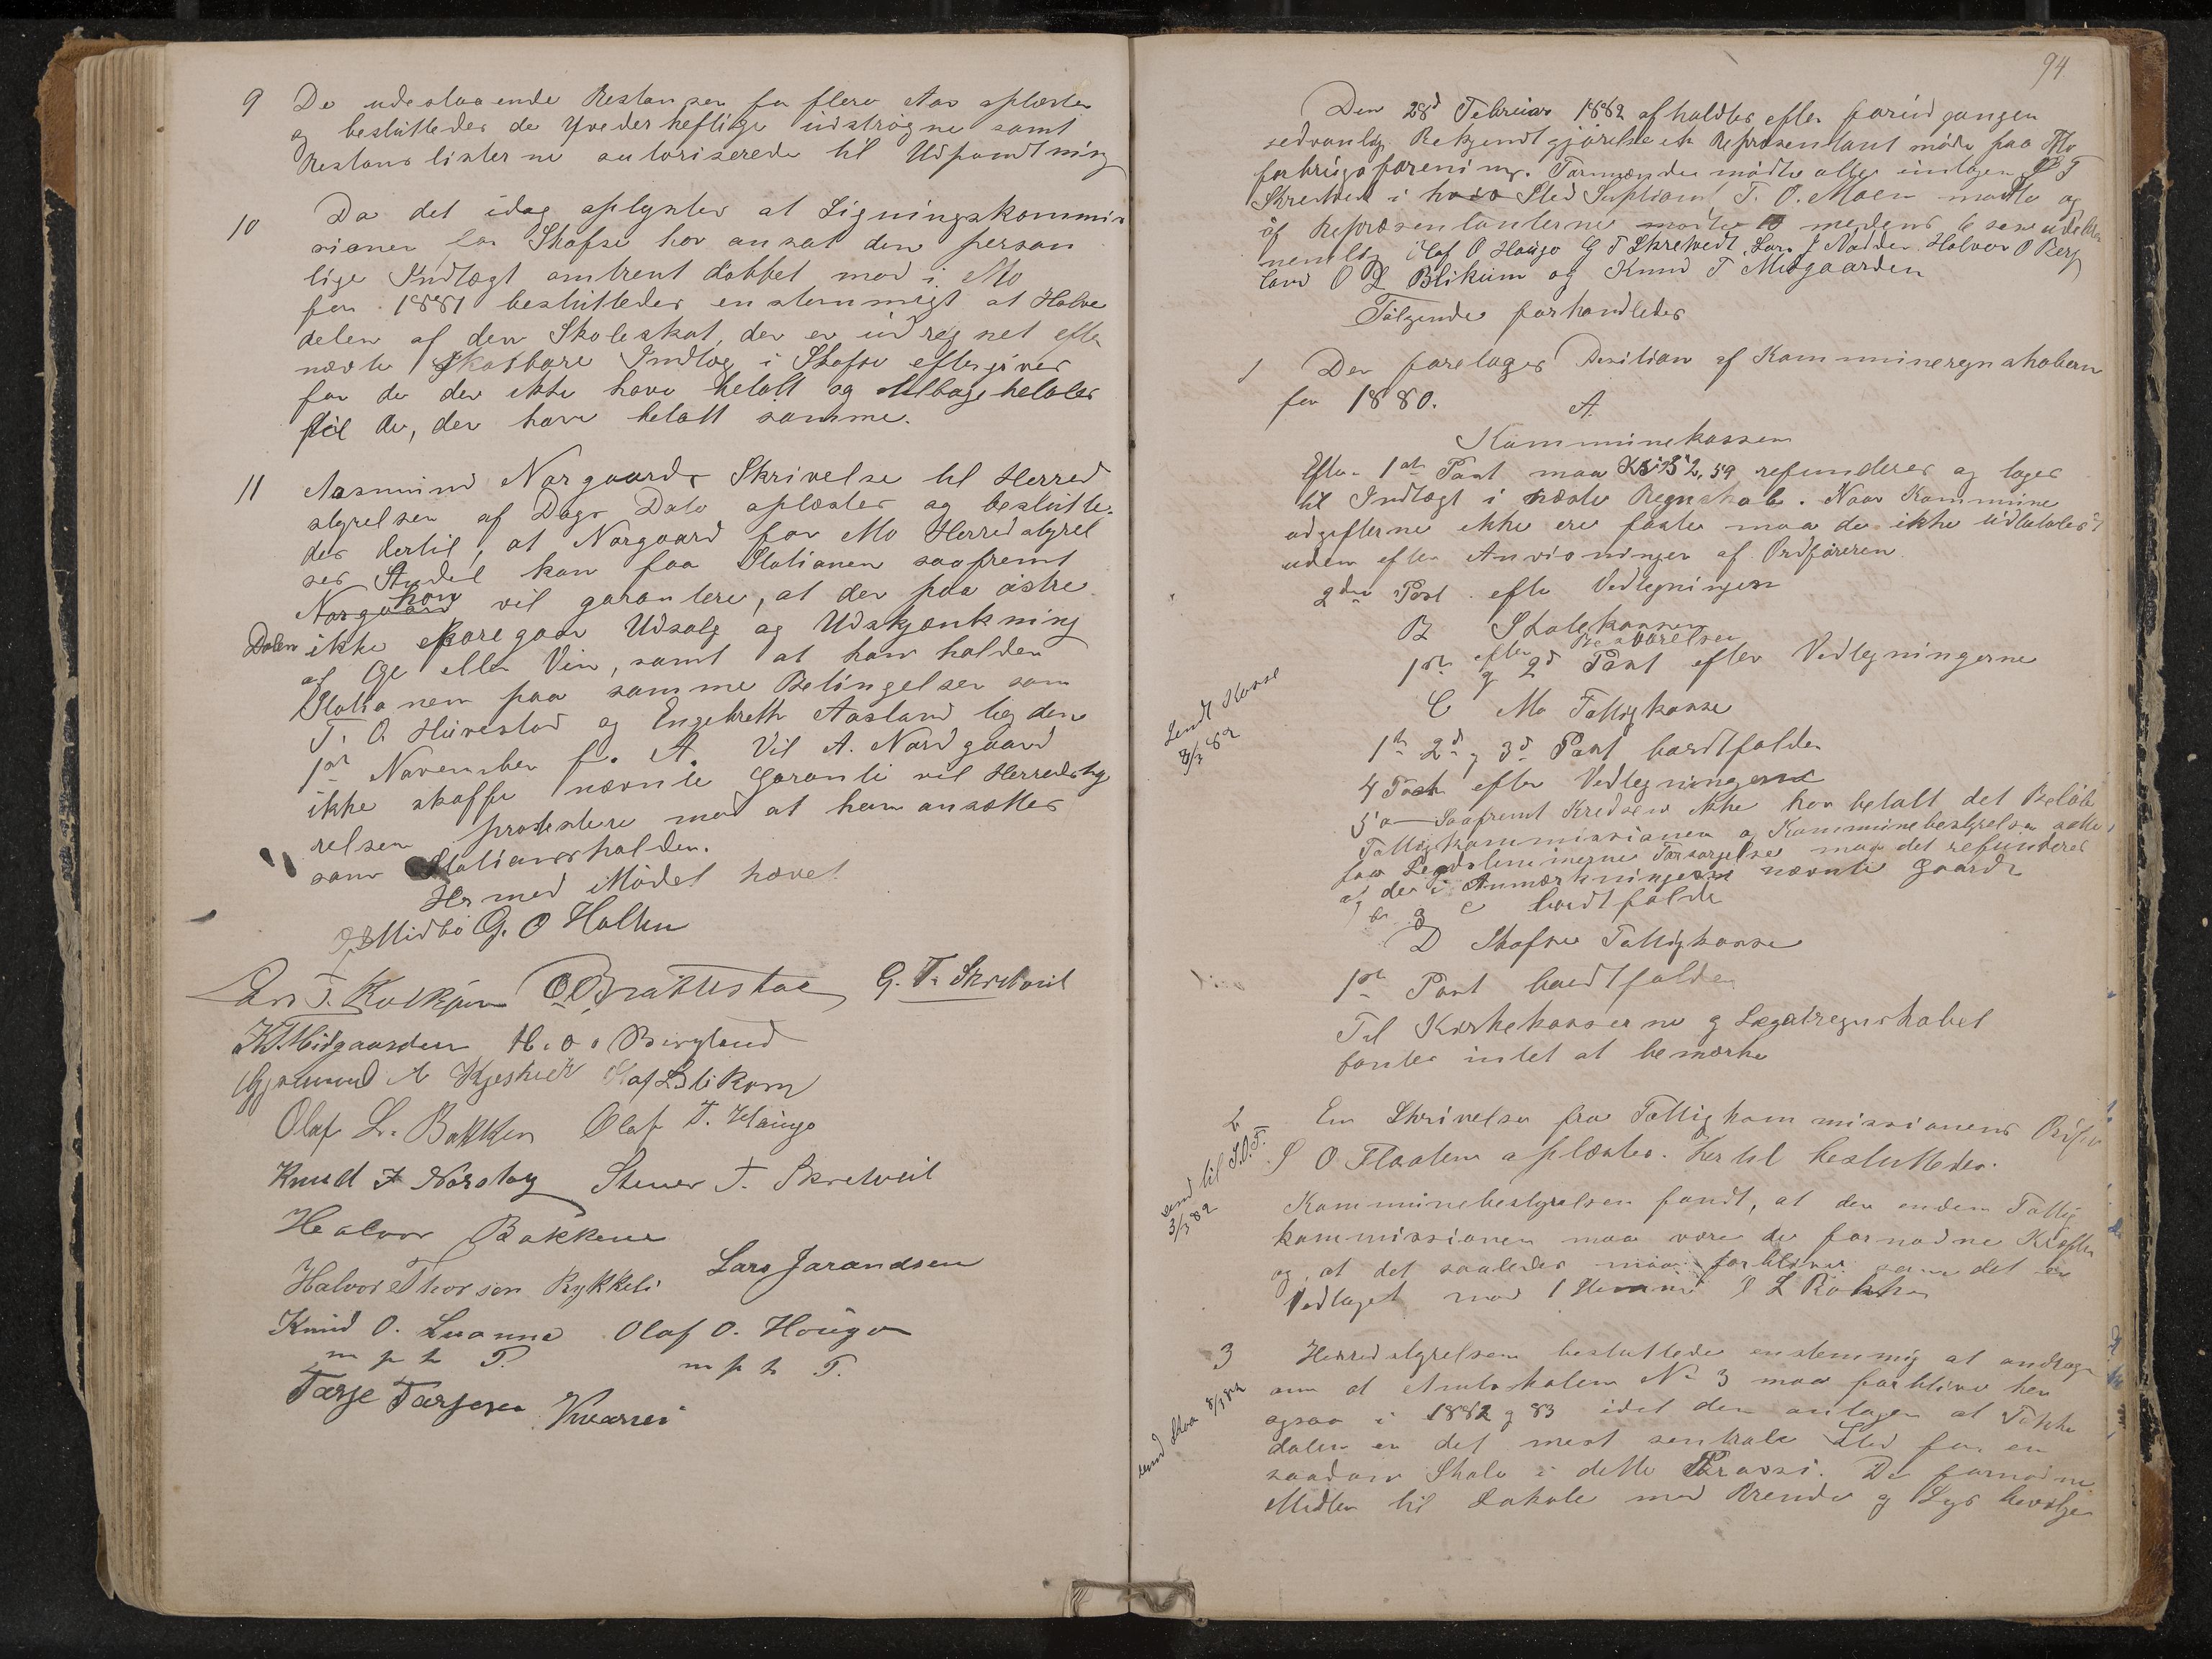 9 De udestaaende Restanser for flere Aar oplæstes
og besluttedes de Uvederheftige udstrøgne samt
Restanslisterne autoriserede til Udpandtning
10 Da det idag oplystes at Ligningskommis
sionen for Skafse har ansat den person
lige Indtægt omtrent dobbel mod i Mo
for 1881 besluttedes enstemmigt at Halve
delen af den Skoleskat, der er udregnet efter
nævnte skatbare Indtæg i Skafse eftergives
for de der ikke have betalt og tilbagebetales
til de, der have betalt samme.
11 Aasmund Norgaards Skrivelse til Herred
styrelsen af Dags Dato oplæstes og beslutte-
des dertil, at Norgaard for Mo Herredstyrel
ses Andel kan faa Stationen saafremt
Norgaard han vil garantere, at der paa østre
Dalen ikke foregaar Udsalg og Udskjænkning
af Øl eller Vin, samt at han holder
Stationen paa samme Betingelser som
T. O. Huvestad og Engebreth Aasland lægden
1ste November f. A. Vil A. Nordgaard
ikke skaffe nævnte Garanti vil Herredsty
relsen protestere mod at han ansættes
som Stationsholder.
Hermed Mødet hævet
Midbø G. O Holten
Lars T. Kolkjen O. Brattestaa G. T. Skretveit
K T. Midgaarden H. O. Bergland
Gjermund A Kjeshvet Olaf L Blikom
Olaf L. Bakken Olaf T. Haugo
Knud F Norstog Stener T. Skretveit
Halvor Bakken
Halvor Thorsen Rykkeli Lars Jarandsen
Knud O. Luanna Olaf O. Hougo
m p h P. m p h P.
Tarje Tarjesen Kvarnes
94
Den 28d Februar 1882 afholdtes efter forudgangen
sedvanlig Bekjendtgjørelse et Representantmøde paa Mo
forbrugsforening. Formændene mødte alle undtagen G T
Skretveit i hvis Sted Supliant T. O. Moen mødte og
af Repræsentanterne mødte 10 medens 6 vare udeblevne
nemlig Olaf O Haugo G T Skretvedt, Lars J Nadden Halvor O Berg
land O L Blikum og Knud T Midgaarden
Følgende forhandledes
1 Der foretoges Desition af Kommuneregnskabern
for 1880. A.
Kommunekassen
Efter 1ste Post maa Kr 52,59 refunderes og tages
til Indtægt i næste Regnskab. Naar Kommune
udgifterne ikke ere faste maa de ikke udbetales
uden efter Anvisninger af Ordføreren
2den Post efter Vedtegningen
B Skolekassen
efter Besvarelsen
1ste og 2d Post efter Vedtegningerne
C Mo Fattigkasse
1ste 2d og 3d Post bortfalder
4 Post efter Vedtegningerne
5 a Saafremt Kredsen ikke har betalt det Beløb
Fattigkommissionen og Kommunebestyrelsen satte
for Legdslemmernes Forsørgelse maa det refunderes
af de i Anmerkningerne nævnte Gaarde
b og c bortfalder
D Skafse Fattigkasse
1ste Post bortfalder
Til Kirkekasserne og Legatregnskabet
fantes intet at bemærke
2 En Skrivelse fra Fattigkommissionens Ordfører
S O Flaaten oplæstes. Hertil besluttedes.
Kommunebestyrelsen fandt, at den enden Fattig
kommissionen maa være de fornødne Kræfter
og, at det saaledes maa forblive som det er
Vedtaget mod 1 Stemme O L Bakken
3 Herredstyrelsen besluttede enstemmig at andrage
om at Amtsskolen No 3 maa forblive her
ogsaa i 1882 og 83 idet den antager at Tokke
dalen er det mest sentrale Sted for en
saadan Skole i dette Provsti. De fornødne
Midler til Lokale med Brende og Lys bevilges
Sendt Kasse
3/3 82
send til S.O.F.
3/3 82
send Skoa 8/3 82